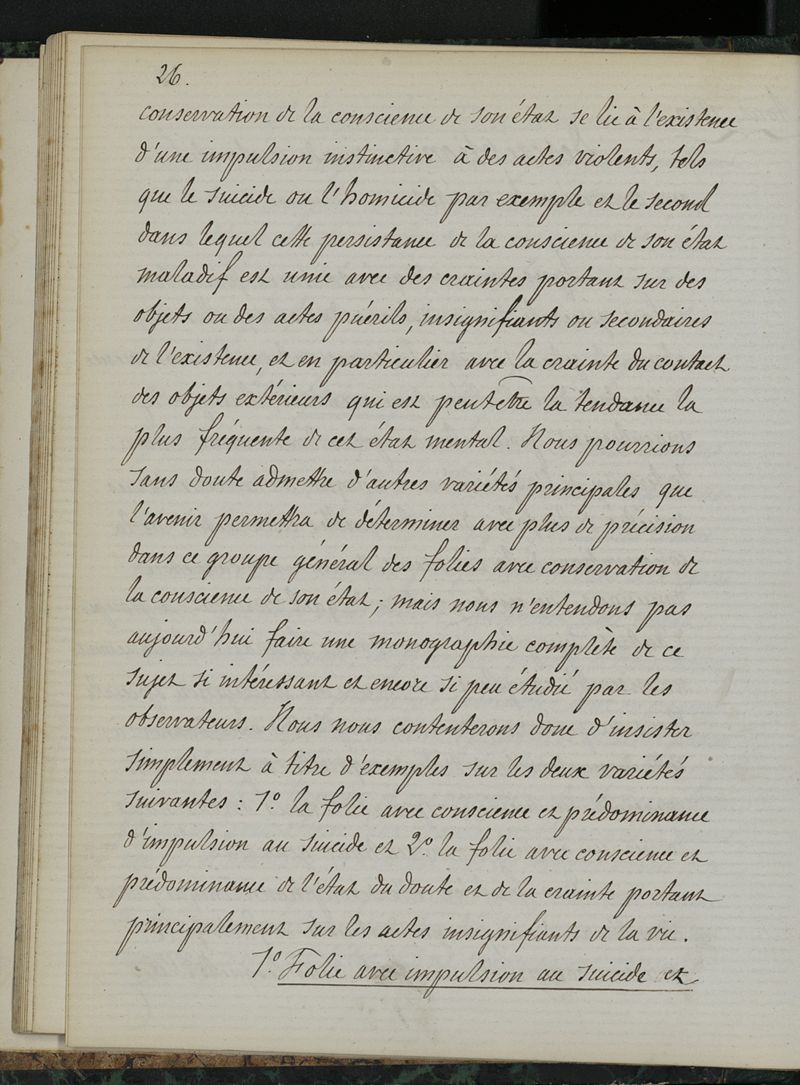 26.
conservation de la conscience de son état se lie à l'existence
d'une impulsion instinctive à des actes violents, tels
que le suicide ou l'homicide par exemple et le second
dans lequel cette persistance de la conscience de son état
maladif est unie avec des craintes portant sur des
objets ou des actes puérils, insignifiants ou secondaires
de l'existence, et en particulier avec la crainte du contact
des objets extérieurs qui est peut être la tendance la
plus fréquente de cet état mental. Nous pourrions
sans doute admettre d'autres variétés principales que
l'avenir permettra de déterminer avec plus de précision
dans ce groupe général des folies avec conservation de
la conscience de son état ; mais nous n'entendons pas
aujourd'hui faire une monographie complète de ce
sujet si intéressant et encore si peu étudié par les
observateurs. Nous nous contenterons donc d'insister
simplement à titre d'exemples sur les deux variétés
suivantes : 1° la folie avec conscience et prédominance
d'impulsion au suicide et 2° la folie avec conscience et
prédominance de l'état du doute et de la crainte portant
principalement sur les actes insignifiants de la vie.
1° Folie avec impulsion au suicide et